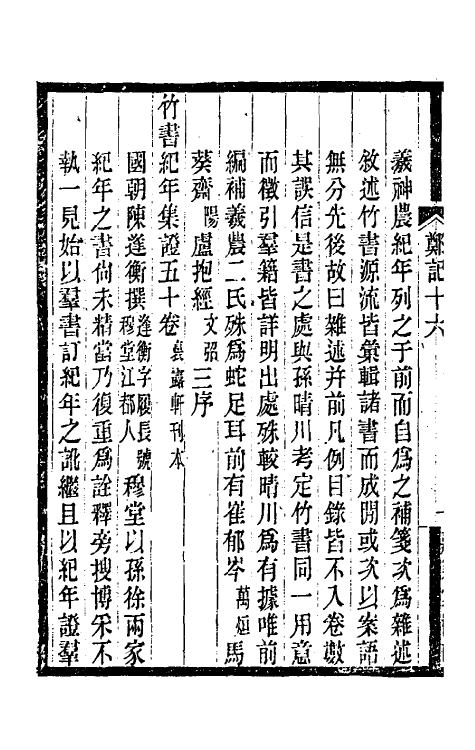 鄭記十六
羲神農紀年列之于前而自爲之補箋次爲雜述
敘述竹書源流皆彙輯諸書而成閒或次以案語
無分先後故曰雜述并前凡例目錄皆不入卷數
其誤信是書之處與孫晴川考定竹書同一用意
而徵引羣籍皆詳明出處殊較晴川爲有據唯前
編補羲農二氏殊爲蛇足耳前有崔郁岑萬烜馬
葵齋陽盧抱經文弨三序
竹書紀年集證五十卷裛露軒刊本
國朝陳逢衡撰逢衡字履長號穆堂江都人穆堂以孫徐兩家
紀年之書尙未精當乃復重爲詮釋旁搜博采不
執一見始以羣書訂紀年之訛繼且以紀年證羣